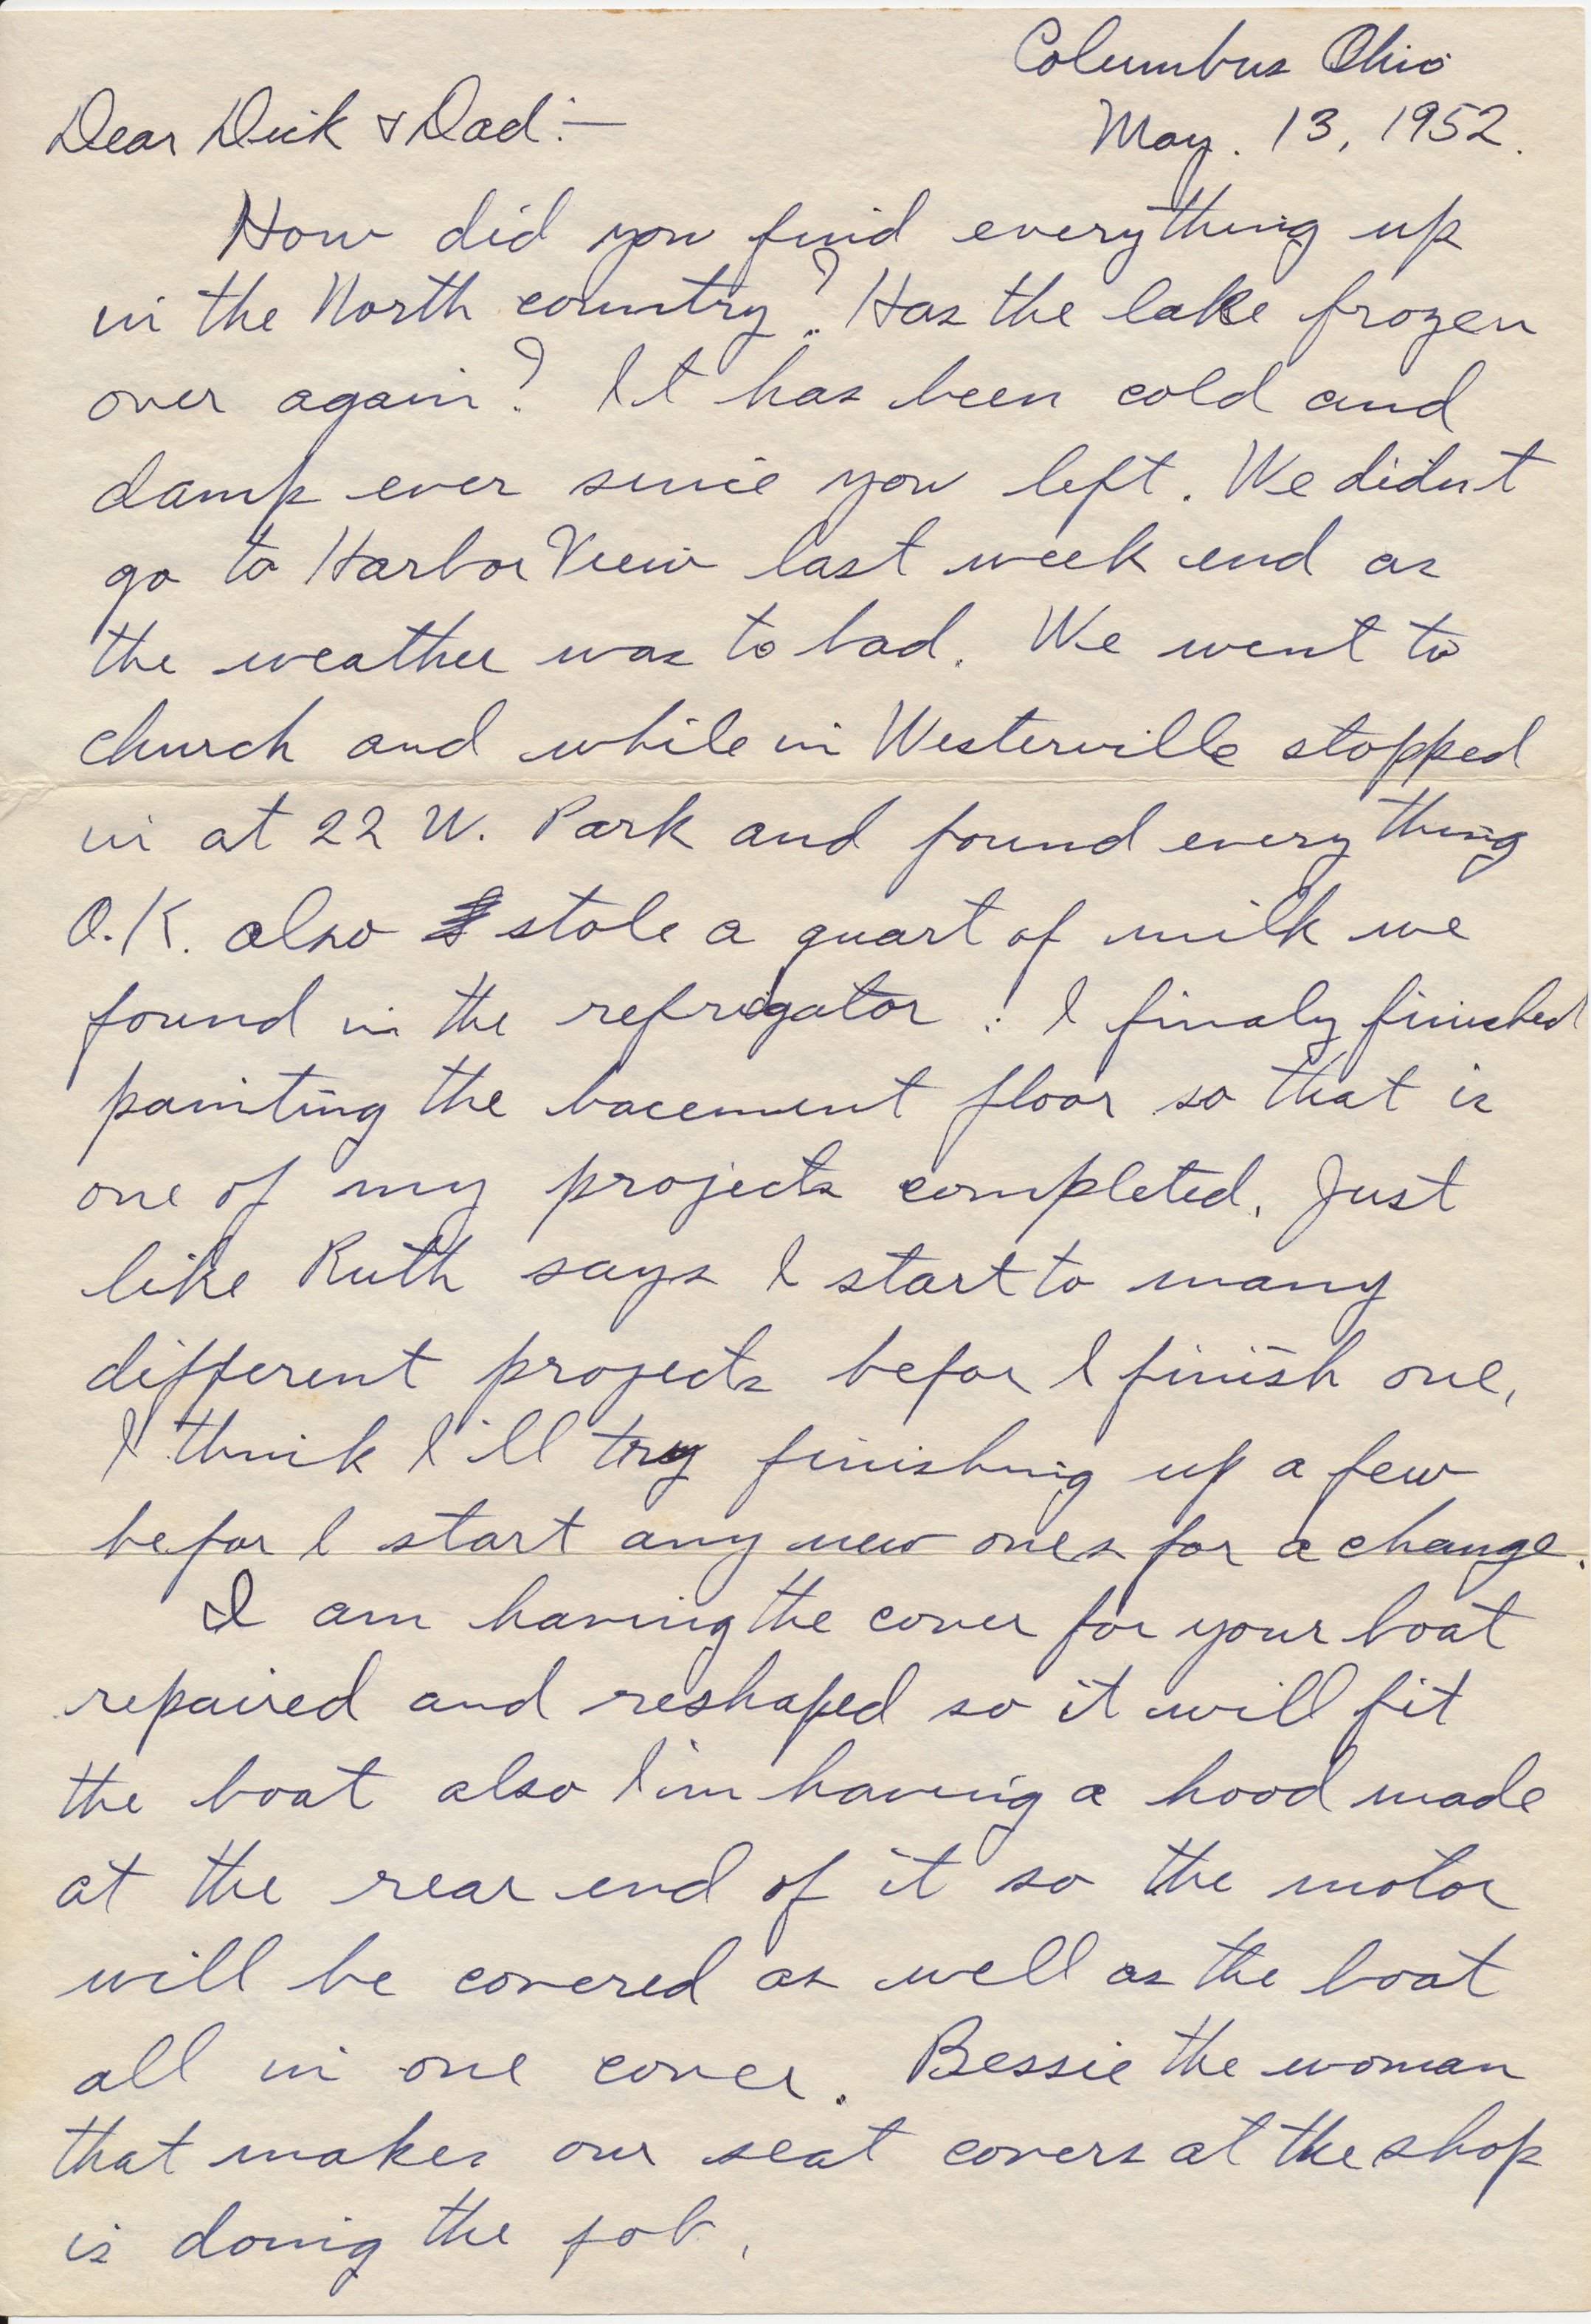 Columbus Ohio
May. 13, 1952.
Dear Dick & Dad:—
How did you find everything up
in the North country? Has the lake frozen
over again? It has been cold and
damp ever since you left. We didn't
go to Harbor View last week end as
the weather was to bad. We went to
church and while in Westerville stopped
in at 22 W. Park and found every thing
O.K. also stole a quart of milk we
found in the refrigator. I finaly finished
painting the bacement floor so that is
one of my projects completed. Just
like Ruth says I start to many
different projects befor I finish one,
I think I'll try finishing up a few
befor I start any new ones for a change.
I am having the cover for your boat
repaired and reshaped so it will fit
the boat also I'm having a hood made
at the rear end of it so the motor
will be covered as well as the boat
all in one cover. Bessie the woman
that makes our seat covers at the shop
is doing the job.